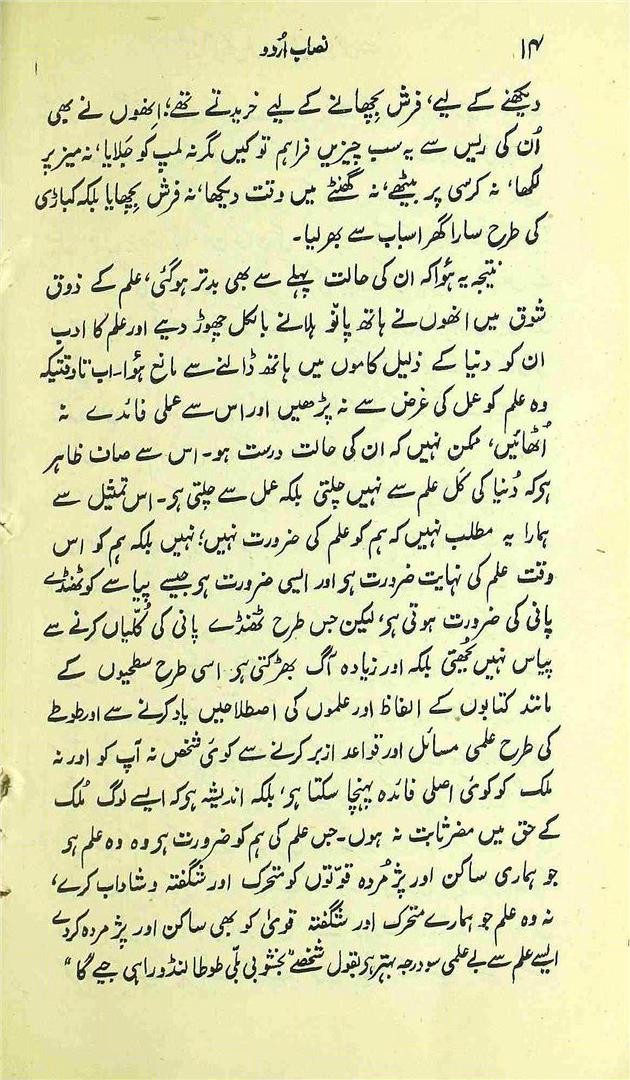 ۱۴ نصاب اُردو
دیکھنے کے لیے، فرش بچھانے کے لیے خریدتے تھے؛ اِنھوں نے بھی
اُن کی ریس سے یہ سب چیزیں فراہم تو کیں مگر نہ لمپ کو جَلایا، نہ میز پر
لکھا، نہ کرسی پر بیٹھے، نہ گھنٹے میں وقت دیکھا، نہ فرش بچھایا بلکہ کباڑی
کی طرح سارا گھر اسباب سے بھر لیا۔
نتیجہ یہ ہؤا کہ ان کی حالت پہلے سے بھی بدتر ہوگئی، علم کے ذوق
شوق میں انھوں نے ہاتھ پانْو ہلانے بالکل چھوڑ دیے اور علم کا ادب
ان کو دنیا کے ذلیل کاموں میں ہاتھ ڈالنے سے مانع ہؤا۔ اب تاوقتیکہ
وہ علم کو عمل کی غرض سے نہ پڑھیں اور اس سے عملی فائدے نہ
اُٹھائیں، ممکن نہیں کہ ان کی حالت درست ہو۔ اس سے صاف ظاہر
ہو کہ دُنیا کی کَل علم سے نہیں چلتی بلکہ عمل سے چلتی ہو۔ اس تمثیل سے
ہمارا یہ مطلب نہیں کہ ہم کو علم کی ضرورت نہیں؛ نہیں بلکہ ہم کو اس
وقت علم کی نہایت ضرورت ہو اور ایسی ضرورت ہو جیسے پیاسے کو ٹھنڈے
پانی کی ضرورت ہوتی ہو، لیکن جس طرح ٹھنڈے پانی کی کُلّیاں کرنے سے
پیاس نہیں بُجھتی بلکہ اور زیادہ آگ بھڑکتی ہو اسی طرح سطحیوں کے
مانند کتابوں کے الفاظ اور علموں کی اصطلاحیں یاد کرنے سے اور طوطے
کی طرح علمی مسائل اور قواعد ازبر کرنے سے کوئی شخص نہ آپ کو اور نہ
ملک کو کوئی اصلی فائدہ پہنچا سکتا ہو، بلکہ اندیشہ ہو کہ ایسے لوگ مُلک
کے حق میں مضر ثابت نہ ہوں۔ جس علم کی ہم کو ضرورت ہو وہ وہ علم ہو
جو ہماری ساکن اور پژمُردہ قوّتوں کو متحرک اور شگفتہ و شاداب کرے،
نہ وہ علم جو ہمارے متحرک اور شگفتہ قویٰ کو بھی ساکن اور پژمردہ کردے
ایسے علم سے بے علمی سو درجہ بہتر ہو بقول شخصے "بخشو بی بلّی طوطا لنڈورا ہی جیے گا"